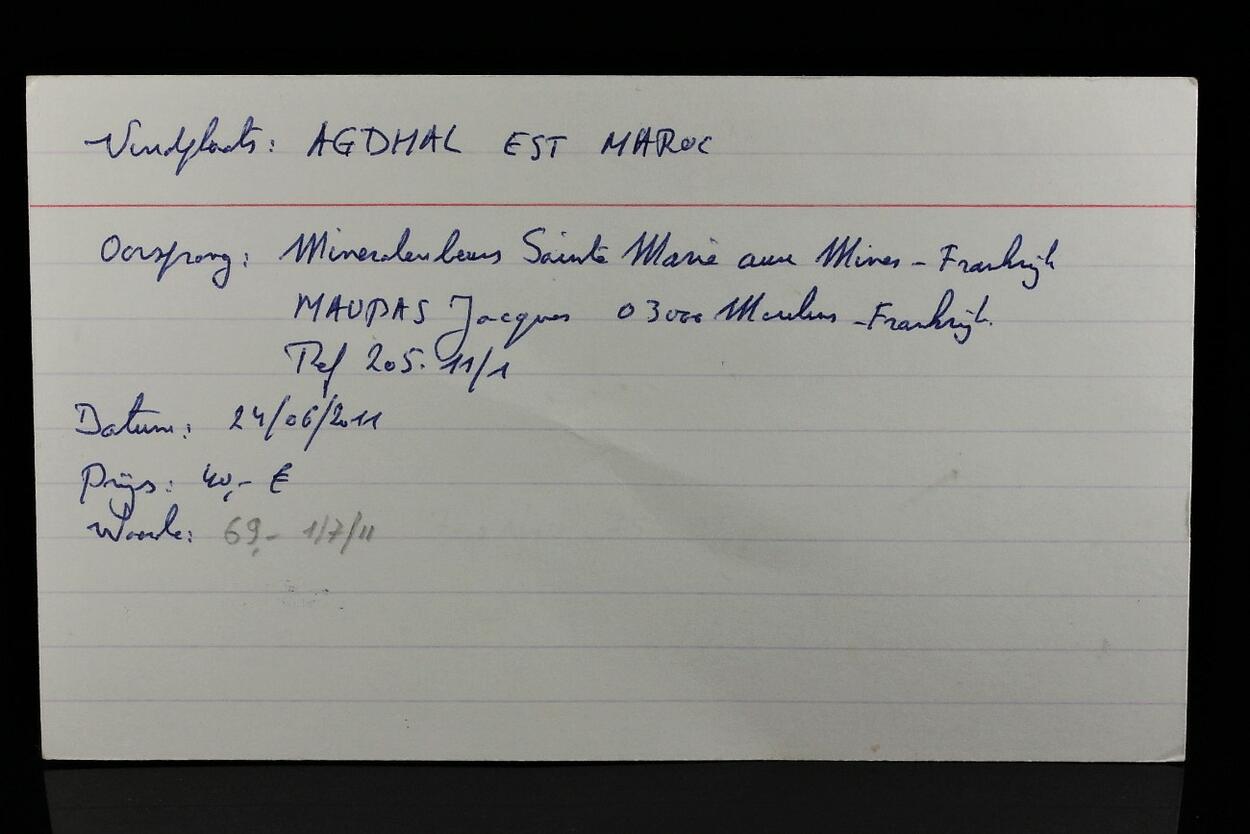 Vindplaats: AGDHAL EST MAROC
Oorsprong: Mineralenbeurs Sainte Marie aux Mines - Frankrijk
MAUPAS Jacques 03000 Moulins - Frankrijk
Ref 205. 11/1
Datum: 24/06/2011
Prijs: 40,- €
Waarde: 69,- 1/7/11